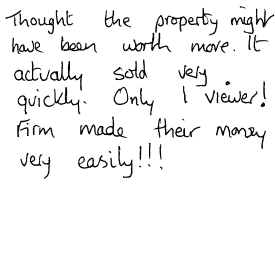 Thought the property might
have been worth more. It
actually sold very
quickly. Only 1 viewer!
Firm made their money
very easily!!!